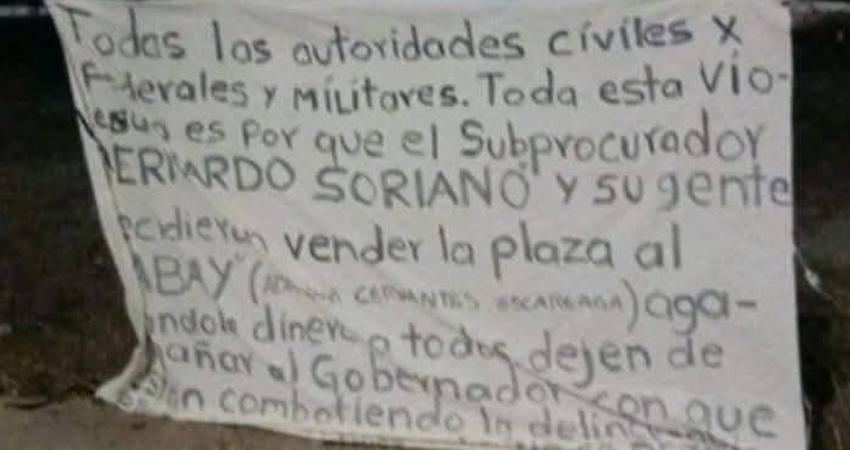 Todas las autoridades civiles x
Federales y Militares. Toda esta Vio-
es por que el Subprocurador
BERNARDO SORIANO y su gente
decidieron vender la plaza al
ABAY" (CERVANTES) aga-
ndole dinero a todos dejen de
añar al Gobernador con que
están combatiendo la